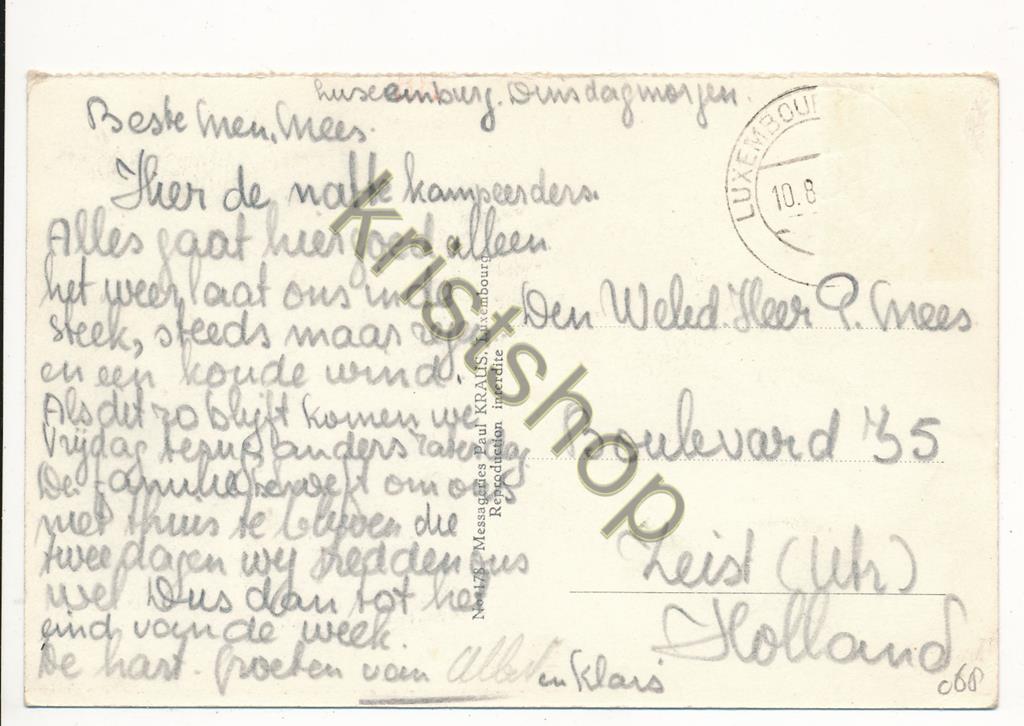 Luxemburg. Dinsdagmorgen.
Beste Men. Mees.
Hier de natte kampeerders.
Alles gaat hier goed alleen
het weer laat ons in de
steek, steeds maar regen
en een koude wind.
Als dit zo blijft komen we
Vrijdag terug anders Zaterdag
De familie hoeft om ons
niet thuis te blijven die
twee dagen wij redden ons
wel Dus dan tot het
eind van de week.
De hart. groeten van Albert en Klaas
LUXEMBOU
10.8
No. 178 Messageries Paul KRAUS, Luxembourg
Reproduction interdite
Den Weled. Heer P. Mees
Boulevard 35
Zeist (Utr)
Holland
068
kristshop